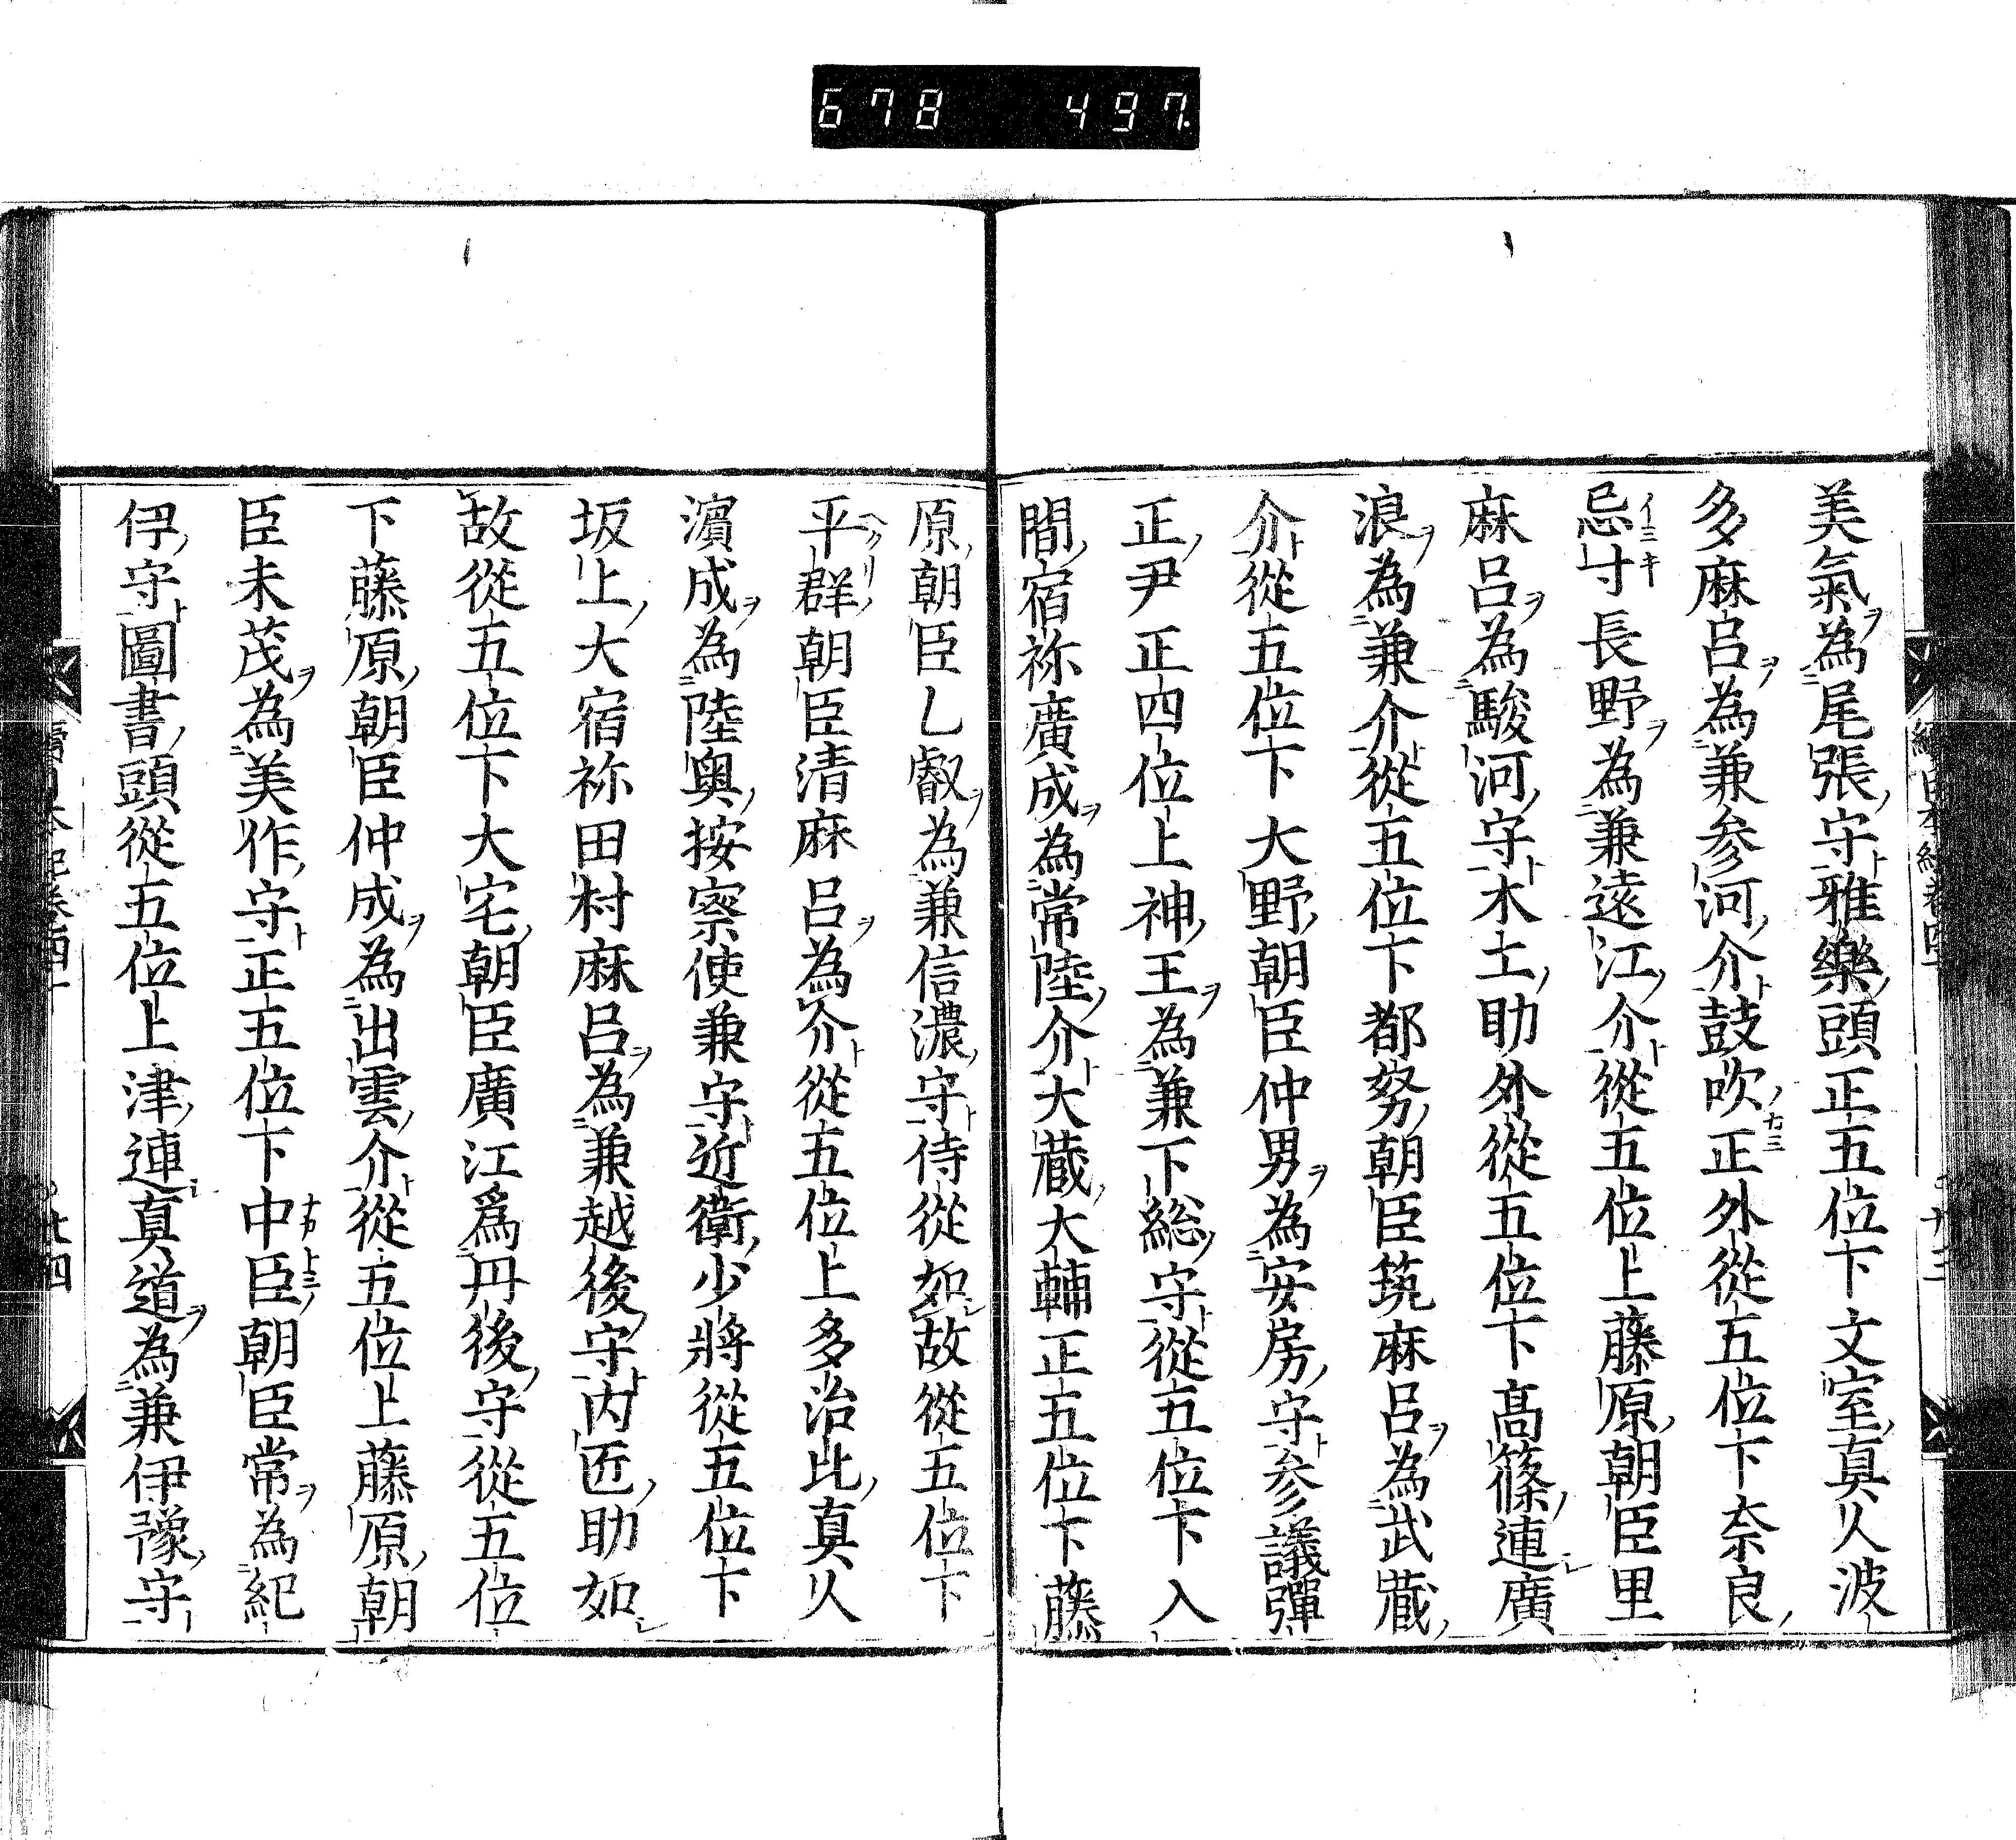 678 497
美氣為尾張守雅樂頭正五位下文室真人波
多麻呂為兼参河介鼓吹正外從五位下奈良
忌寸長野為兼遠江介從五位上藤原朝臣里
麻呂為駿河守木土助外從五位下高篠連廣
浪為兼介從五位下都努朝臣筑麻呂為武蔵
介從五位下大野朝臣仲男為安房守参議彈
正尹正四位上神王為兼下総守從五位下入
間宿祢廣成為常陸介大蔵大輔正五位下藤
原朝臣乙叡為兼信濃守侍從如故從五位下
平群朝臣清麻呂為介從五位上多治比真人
濱成為陸奥按察使兼守近衛少將從五位下
坂上大宿祢田村麻呂為兼越後守内匠助如
故從五位下大宅朝臣廣江爲丹後守從五位
下藤原朝臣仲成為出雲介從五位上藤原朝
臣末茂為美作守正五位下中臣朝臣常為紀
伊守圖書頭從五位上津連真道為兼伊豫守